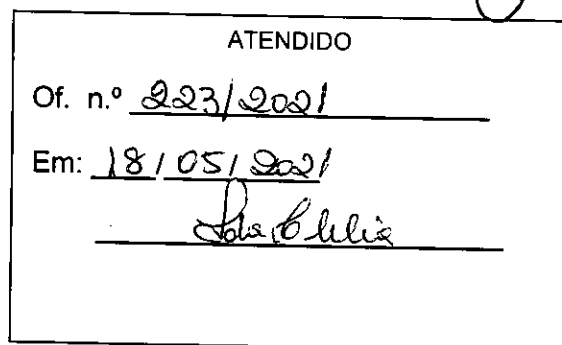 ATENDIDO
Of. n.º 223/2021
Em: 18/05/2021